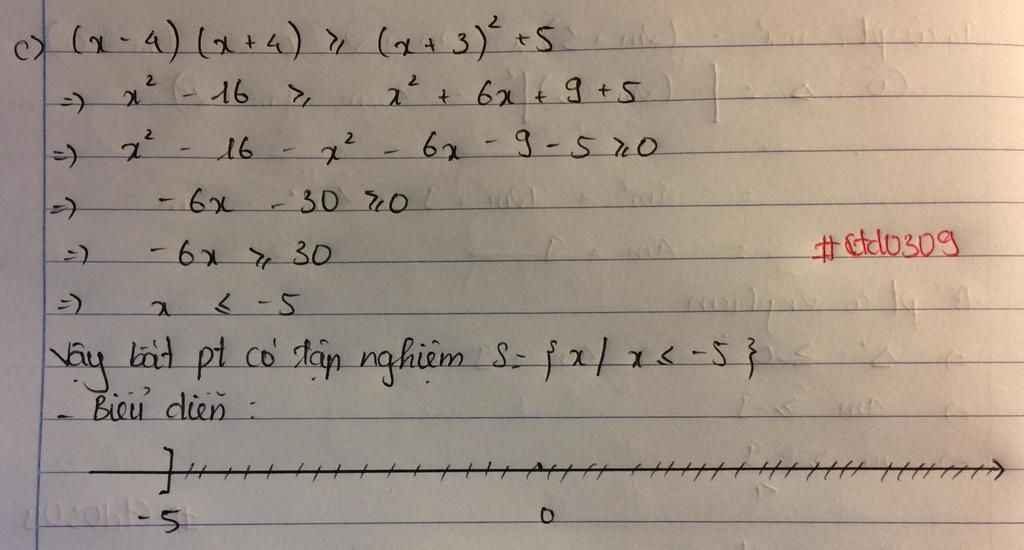 c) (x - 4) (x + 4) ⩾ (x + 3)² + 5
=) x² - 16 ⩾ x² + 6x + 9 + 5
=) x² - 16 - x² - 6x - 9 - 5 ⩾ 0
=) - 6x - 30 ⩾ 0
=) - 6x ⩾ 30
#Ctd0309
=) x ≤ -5
Vậy bất pt có tập nghiệm S = { x / x ≤ -5 }
- Biểu diễn :
-5 0